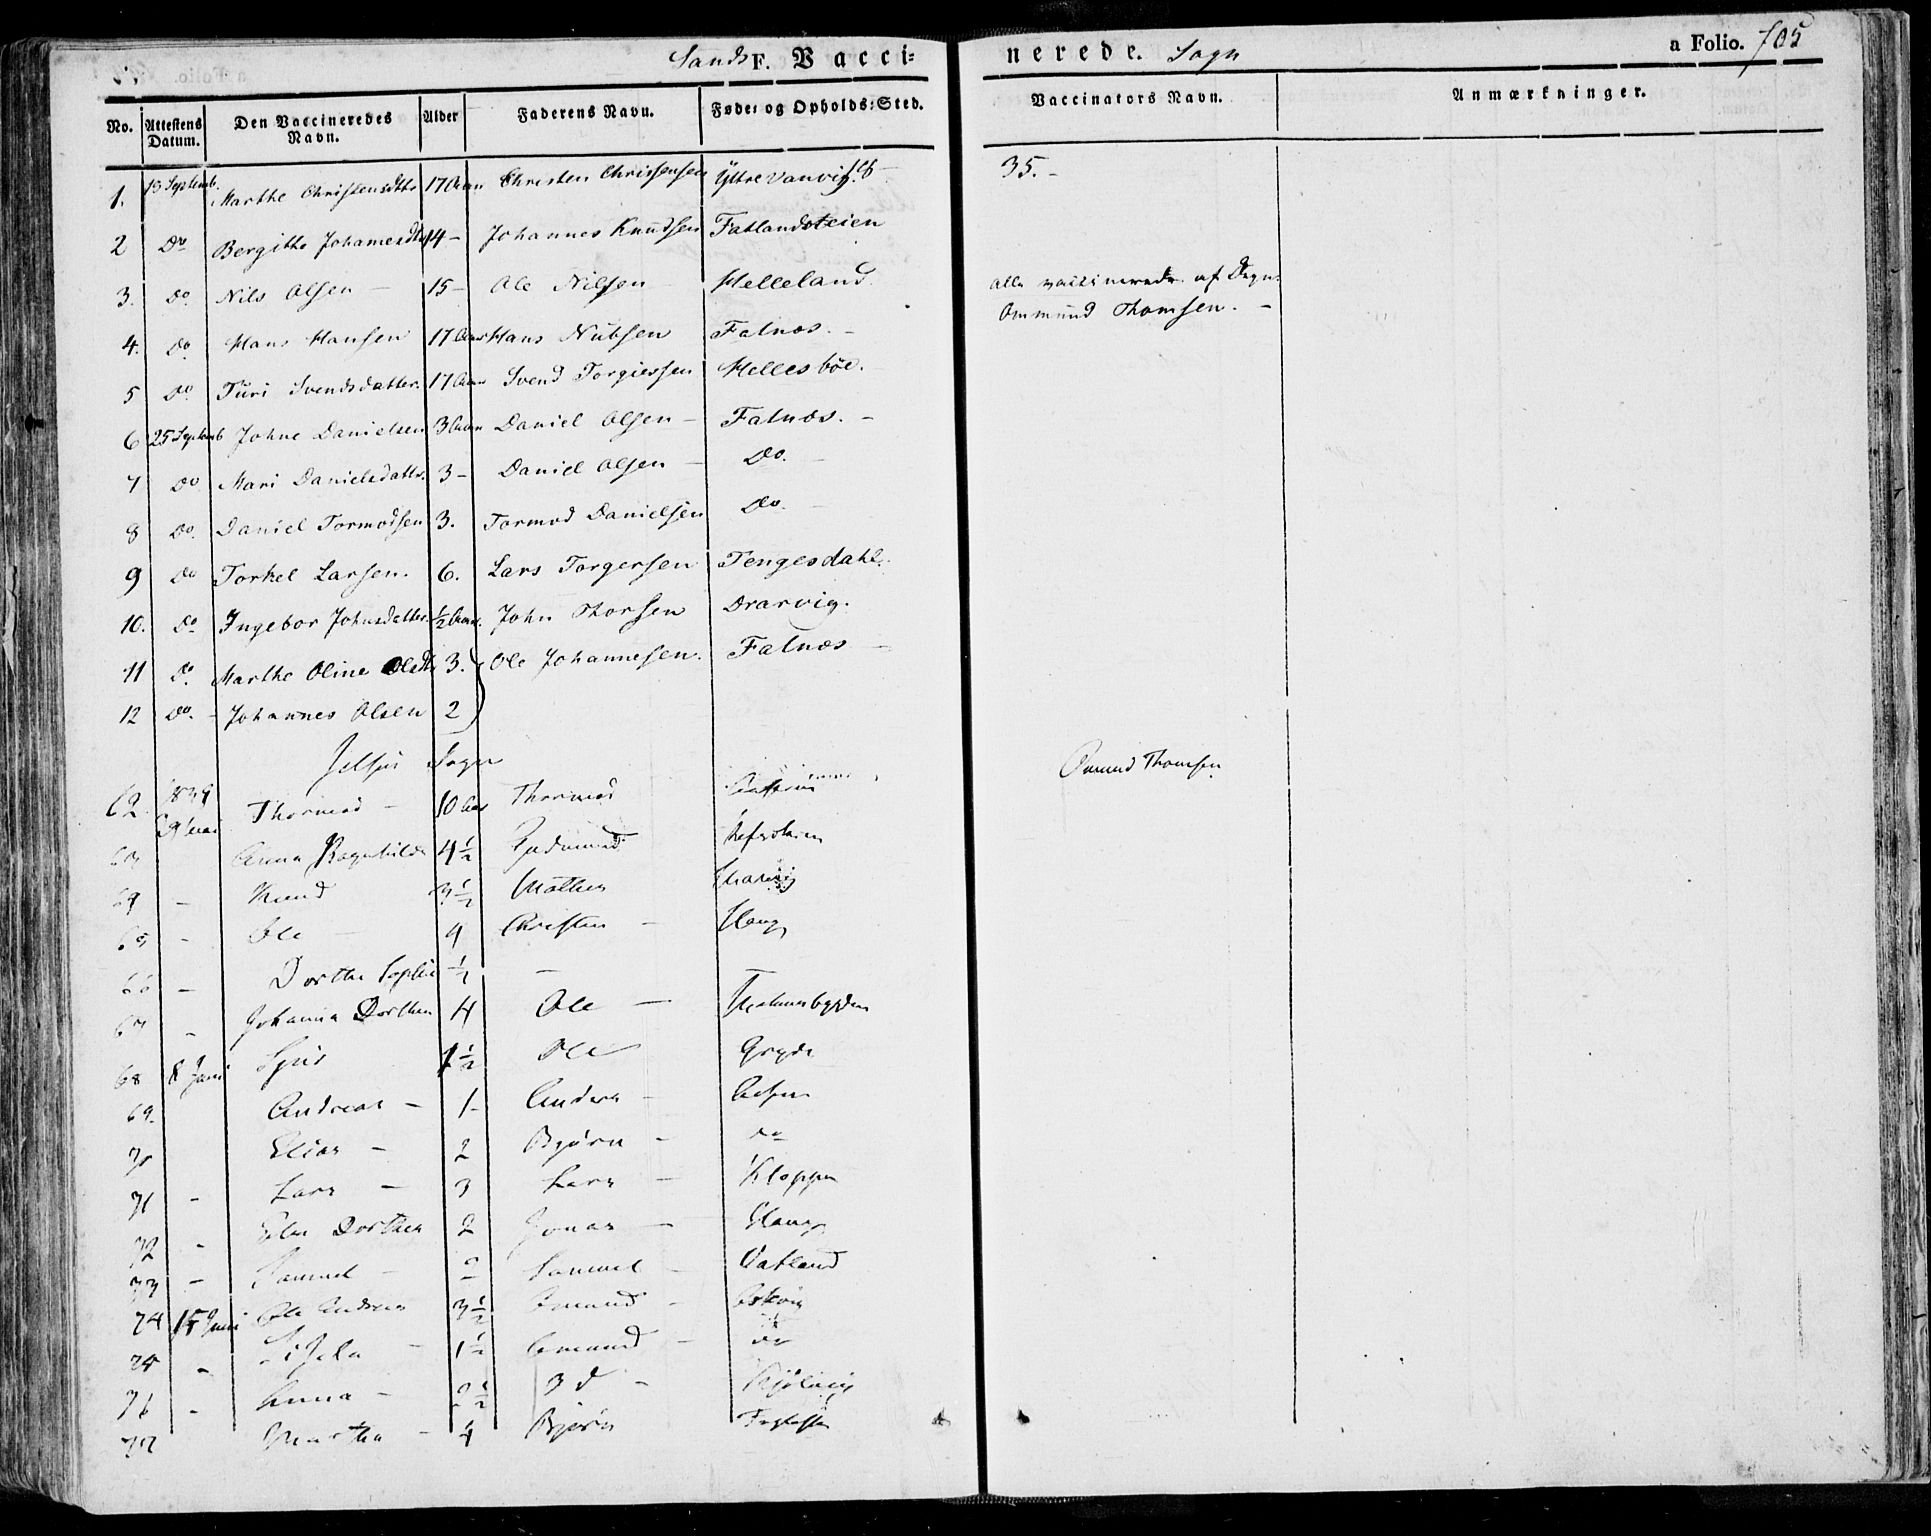 Sands F. Vaccinerede. Sogn a Folio. 705
No. Attestens Datum. Den Vaccineredes Navn. Alder Faderens Navn. Føde- og Opholds-Sted. Vaccinators Navn. Anmærkninger.
1. 13 Septemb. Marthe Christensdttr 17 Aar Christen Christensen Ytre Vanvig 35.-
2 Do Bergitte Johannesdtr 14 - Johannes Knudsen Fatlandsteien
3. Do. Nils Olsen - 15 - Ole Nilsen Helleland. alle vaccinerede af Degn
4. Do. Hans Hansen 17 Aar Hans Nubsen Fatnæs. - Ommund Thomsen. -
5 Do. Turi Svendsdatter. 17 Aar Svend Torgiessen Hellesböe.
6 25 Septemb Johne Danielsen 3 Aar Daniel Olsen - Fatnæs. -
7 Do. Mari Danielsdattr. 3 - Daniel Olsen - Do. -
8 Do. Daniel Tormodsen 3. Tormod Danielsen Do. -
9 Do Torkel Larsen. 6. Lars Torgersen Tengesdahl.
10. Do Ingebor Johnsdatter ½ Aar. John Thorsen Drarvig.
11 Do. Marthe Oline Olsdtr 3. Ole Johannesen. Fatnæs -
12 Do. - Johannes Olsen 2
Jelsøe Sogn
62. 1834 Thormod - 10 Aar Thormod Omund Thomsen
Anna Ragnhilde 4½ Gudmund
- Knud 3½ Mathes
65 - Ole - 9 Christen - Haug
66 - Dorthe Sophie ½ -
67 - Johanna Dorthea 4 Ole -
68 8 Juni 1½ Ole
69. Andreas - 1 - Anders -
70 Elias - 2 Bjørn - do
71 - Lars - 3 Lars - Kloppen
72 - Dorthea 2 Jonas - Haug
73 - Samuel - 2 Samuel - Vatland
74 15 Juni Ole Andreas 3½ Omund -
75 - 1½ Omund - do
76 - Anna - 2½
77 Martha - 4 Bjørn